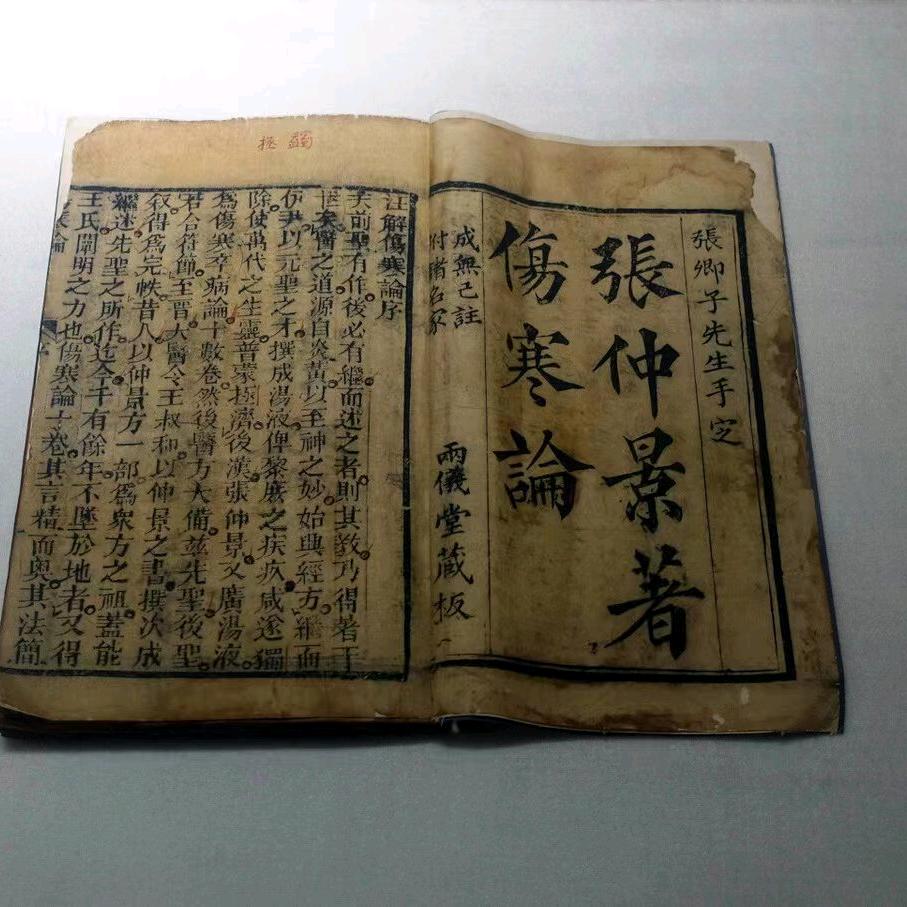 張卿子先生手定
張仲景著
傷寒論
成無己註
附諸名家
兩儀堂藏板
蠲 拯
注解傷寒論序
夫前聖有作。後必有繼而述之者。則其教乃得著于
醫之道源自炎黃。以至神之妙。始興經方。繼而
伊尹以元聖之才。撰成湯液。俾黎庶之疾疚。咸遂獨
除。使萬代之生靈。普蒙極濟。後漢張仲景。又廣湯液。
為傷寒卒病論十數卷。然後醫方大備。茲先聖後聖。
若合符節。至晉大醫令王叔和。以仲景之書。撰次成
叙。得為完帙。昔人以仲景方一部。為衆方之祖。蓋能
繼述先聖之所作。迄今千有餘年。不墜於地者。又得
王氏闡明之力也。傷寒論十卷。其言精而奧。其法簡